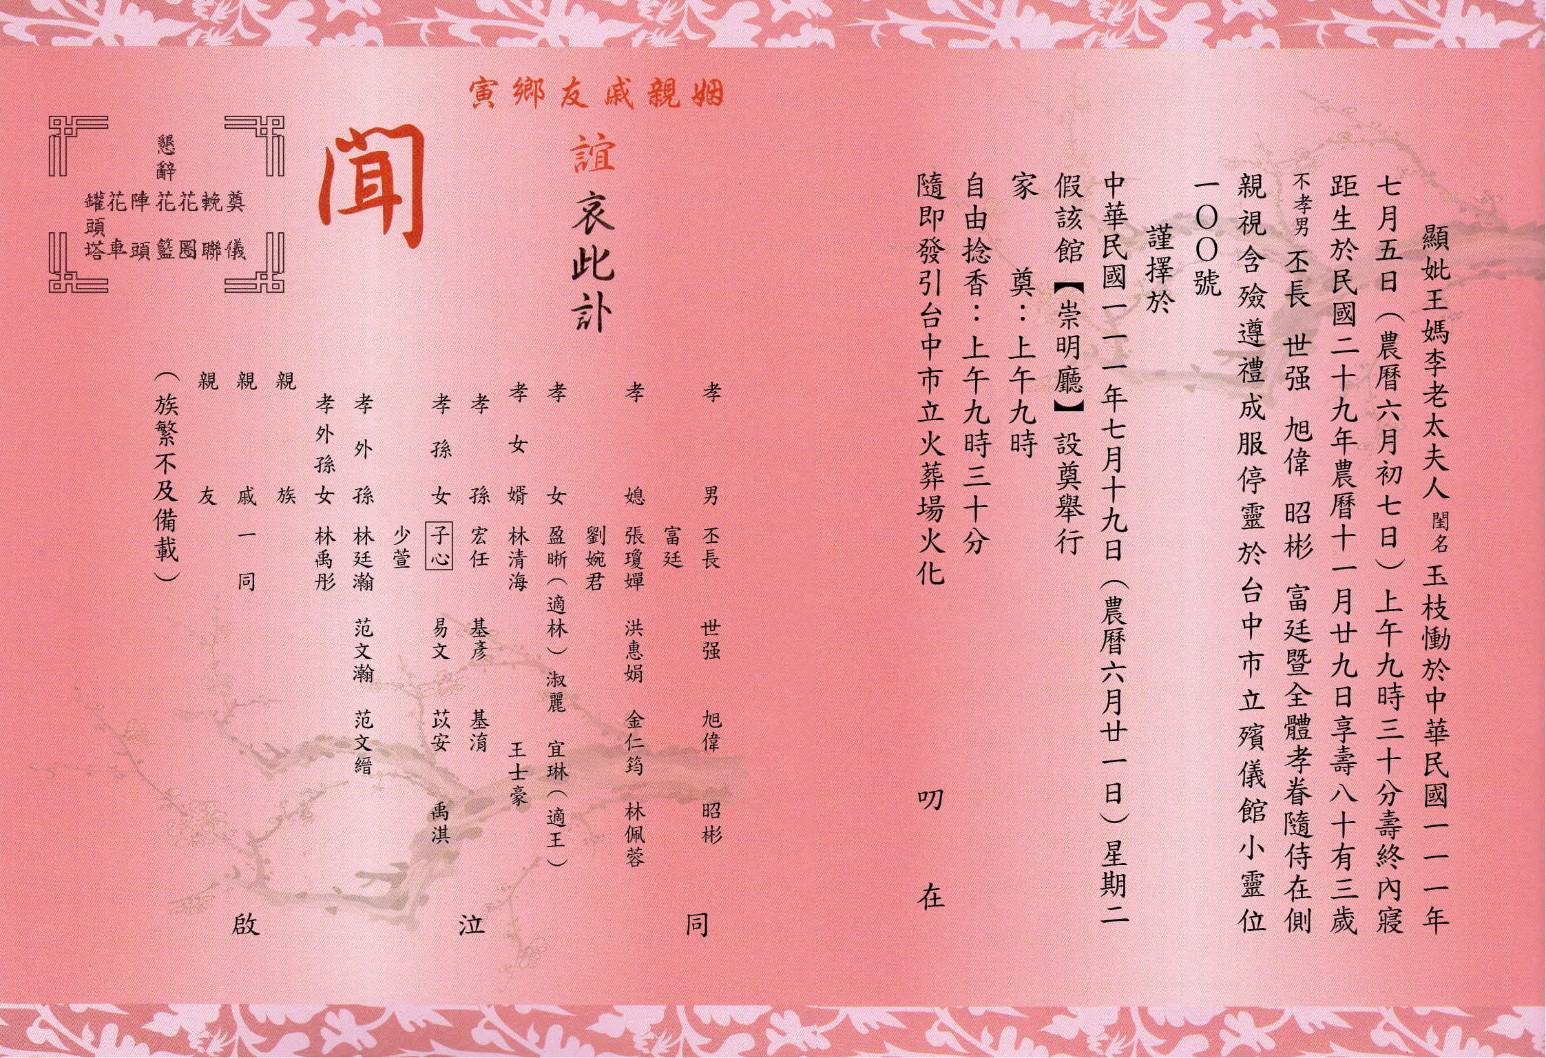 顯妣王媽李老太夫人閨名玉枝慟於中華民國一一一年
七月五日（農曆六月初七日）上午九時三十分壽終內寢
距生於民國二十九年農曆十一月廿九日享壽八十有三歲
不孝男丕長 世强 旭偉 昭彬 富廷暨全體孝眷隨侍在側
親視含殮遵禮成服停靈於台中市立殯儀館小靈位
一〇〇號
謹擇於
中華民國一一一年七月十九日（農曆六月廿一日）星期二
假該館【崇明廳】設奠舉行
家 奠：上午九時
自由捻香：上午九時三十分
隨即發引台中市立火葬場火化
叨在
姻親戚友鄉寅
誼哀此訃
聞
孝男 丕長 世强 旭偉 昭彬
富廷
孝媳 張瓊嬋 洪惠娟 金仁筠 林佩蓉
劉婉君
孝女 盈晰（適林）淑麗 宜琳（適王）
孝女婿 林清海 王士豪
孝孫 宏任 基彥 基淯
孝孫女 子心 易文 苡安 禹淇
少萱
孝外孫 林廷瀚 范文瀚 范文縉
孝外孫女 林禹彤
親族
親戚一同
親友
（族繁不及備載）
同泣啟
懇辭
奠儀
輓聯
花圈
花籃
陣頭
花車
罐頭塔